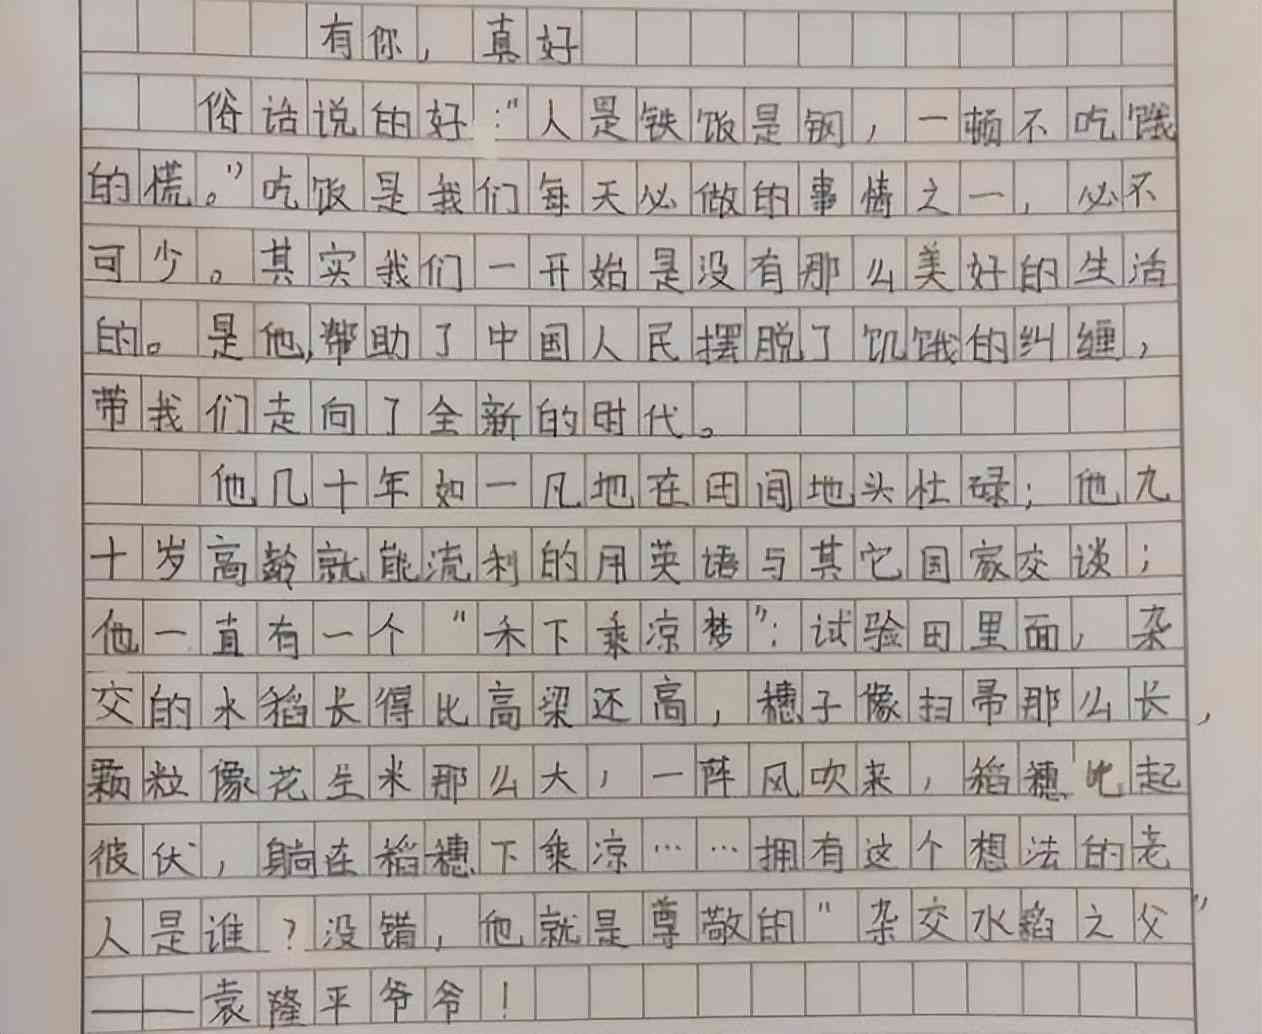 有你，真好
俗话说的好："人是铁饭是钢，一顿不吃饿
的慌。"吃饭是我们每天必做的事情之一，必不
可少。其实我们一开始是没有那么美好的生活
的。是他，帮助了中国人民摆脱了饥饿的纠缠，
带我们走向了全新的时代。
他几十年如一凡地在田间地头杜碌；他九
十岁高龄就能流利的用英语与其它国家交谈；
他一直有一个"禾下乘凉梦"：试验田里面，杂
交的水稻长得比高梁还高，穗子像扫帚那么长，
颗粒像花生米那么大，一阵风吹来，稻穗此起
彼伏，躺在稻穗下乘凉……拥有这个想法的老
人是谁？没错，他就是尊敬的"杂交水稻之父"
——袁隆平爷爷！